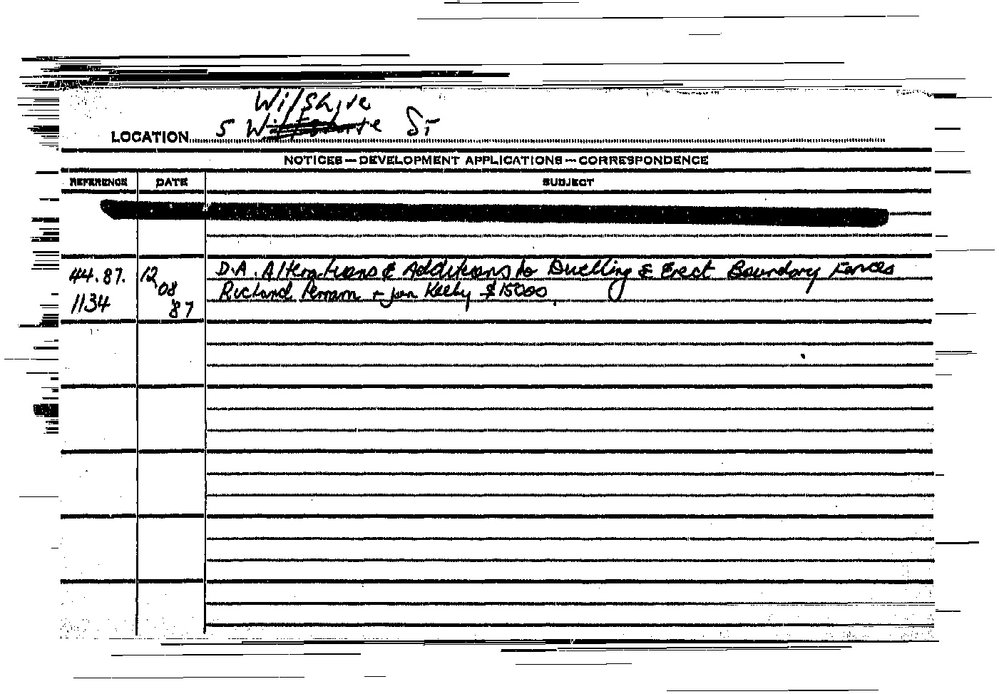 Wilshire
LOCATION 5 St
NOTICES — DEVELOPMENT APPLICATIONS — CORRESPONDENCE
REFERENCE DATE SUBJECT
44.87. 12 D.A. Alterations & Additions to Dwelling & Erect Boundary Fences
1134 08 87 Richard & Jan $15000.